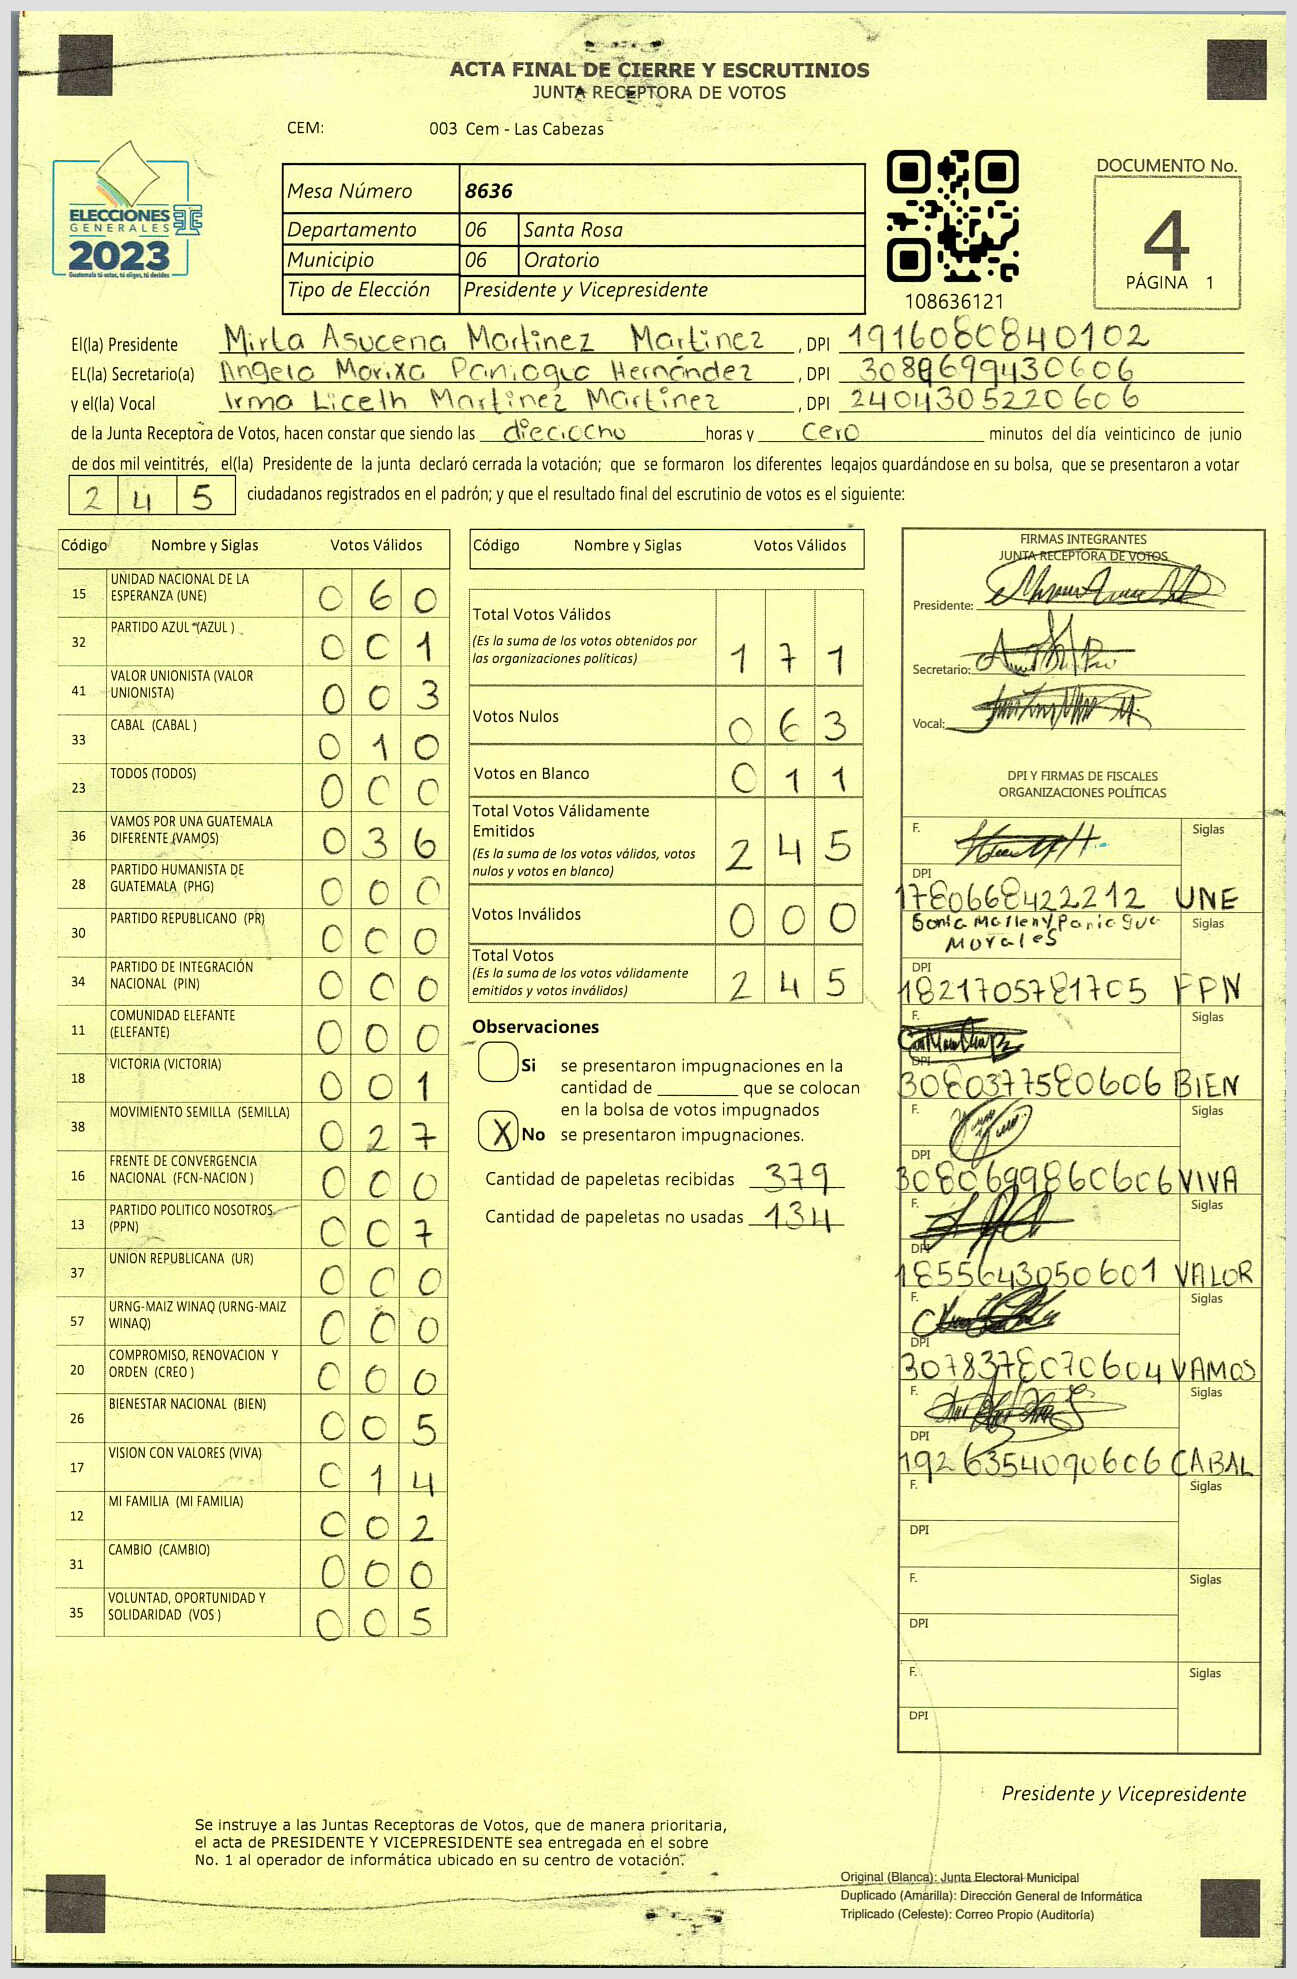 ACTA FINAL DE CIERRE Y ESCRUTINIOS
JUNTA RECEPTORA DE VOTOS
CEM: 003 Cem - Las Cabezas
ELECCIONES
GENERALES
2023
Guatemala tú votas, tú eliges, tú decides
Mesa Número 8636
Departamento 06 Santa Rosa
Municipio 06 Oratorio
Tipo de Elección Presidente y Vicepresidente
108636121
DOCUMENTO No.
4
PÁGINA 1
El(la) Presidente Mirla Asucena Martinez Martinez , DPI 1916080840102
EL(la) Secretario(a) Angela Marixa Paniagua Hernández , DPI 3089699430606
y el(la) Vocal Irma Liceth Martinez Martinez , DPI 2404305220606
de la Junta Receptora de Votos, hacen constar que siendo las dieciocho horas y cero minutos del día veinticinco de junio
de dos mil veintitrés, el(la) Presidente de la junta declaró cerrada la votación; que se formaron los diferentes legajos guardándose en su bolsa, que se presentaron a votar
2 4 5 ciudadanos registrados en el padrón; y que el resultado final del escrutinio de votos es el siguiente:
Código Nombre y Siglas Votos Válidos
15 UNIDAD NACIONAL DE LA ESPERANZA (UNE) 0 6 0
32 PARTIDO AZUL (AZUL ) 0 0 1
41 VALOR UNIONISTA (VALOR UNIONISTA) 0 0 3
33 CABAL (CABAL ) 0 1 0
23 TODOS (TODOS) 0 0 0
36 VAMOS POR UNA GUATEMALA DIFERENTE (VAMOS) 0 3 6
28 PARTIDO HUMANISTA DE GUATEMALA (PHG) 0 0 0
30 PARTIDO REPUBLICANO (PR) 0 0 0
34 PARTIDO DE INTEGRACIÓN NACIONAL (PIN) 0 0 0
11 COMUNIDAD ELEFANTE (ELEFANTE) 0 0 0
18 VICTORIA (VICTORIA) 0 0 1
38 MOVIMIENTO SEMILLA (SEMILLA) 0 2 7
16 FRENTE DE CONVERGENCIA NACIONAL (FCN-NACION ) 0 0 0
13 PARTIDO POLITICO NOSOTROS (PPN) 0 0 7
37 UNION REPUBLICANA (UR) 0 0 0
57 URNG-MAIZ WINAQ (URNG-MAIZ WINAQ) 0 0 0
20 COMPROMISO, RENOVACION Y ORDEN (CREO ) 0 0 0
26 BIENESTAR NACIONAL (BIEN) 0 0 5
17 VISION CON VALORES (VIVA) 0 1 4
12 MI FAMILIA (MI FAMILIA) 0 0 2
31 CAMBIO (CAMBIO) 0 0 0
35 VOLUNTAD, OPORTUNIDAD Y SOLIDARIDAD (VOS ) 0 0 5
Código Nombre y Siglas Votos Válidos
Total Votos Válidos
(Es la suma de los votos obtenidos por
las organizaciones políticas) 1 7 1
Votos Nulos 0 6 3
Votos en Blanco 0 1 1
Total Votos Válidamente
Emitidos
(Es la suma de los votos válidos, votos
nulos y votos en blanco) 2 4 5
Votos Inválidos 0 0 0
Total Votos
(Es la suma de los votos válidamente
emitidos y votos inválidos) 2 4 5
Observaciones
Si se presentaron impugnaciones en la
cantidad de ________ que se colocan
en la bolsa de votos impugnados
X No se presentaron impugnaciones.
Cantidad de papeletas recibidas 379
Cantidad de papeletas no usadas 134
FIRMAS INTEGRANTES
JUNTA RECEPTORA DE VOTOS
Presidente:
Secretario:
Vocal:
DPI Y FIRMAS DE FISCALES
ORGANIZACIONES POLÍTICAS
F. Siglas
DPI
1780668422212 UNE
Sonia Marleny Paniagua Siglas
Morales
DPI
1821705781705 FPN
F. Siglas
DPI
3080377580606 BIEN
F. Siglas
DPI
3080699860606 VIVA
F. Siglas
DPI
1855643050601 VALOR
F. Siglas
DPI
3078378070604 VAMOS
F. Siglas
DPI
1926354090606 CABAL
F. Siglas
DPI
F. Siglas
DPI
F. Siglas
DPI
Presidente y Vicepresidente
Se instruye a las Juntas Receptoras de Votos, que de manera prioritaria,
el acta de PRESIDENTE Y VICEPRESIDENTE sea entregada en el sobre
No. 1 al operador de informática ubicado en su centro de votación.
Original (Blanca): Junta Electoral Municipal
Duplicado (Amarilla): Dirección General de Informática
Triplicado (Celeste): Correo Propio (Auditoría)